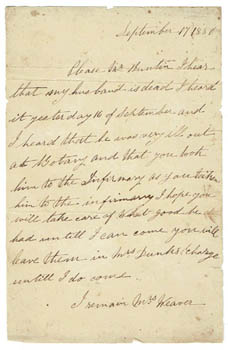 September 17 1881
Please Mr Hunton I hear
that my husband is dead I heard
it yesterday 16 of September and
I heard that he was very ill out
at Botiny and that you took
him to the Infirmary as you taken
him to the infirmary I hope you
will take care of what good he
had untill I can come you will
leave them in Mrs Dunks Charge
untill I do come
I remain Mrs Weaver